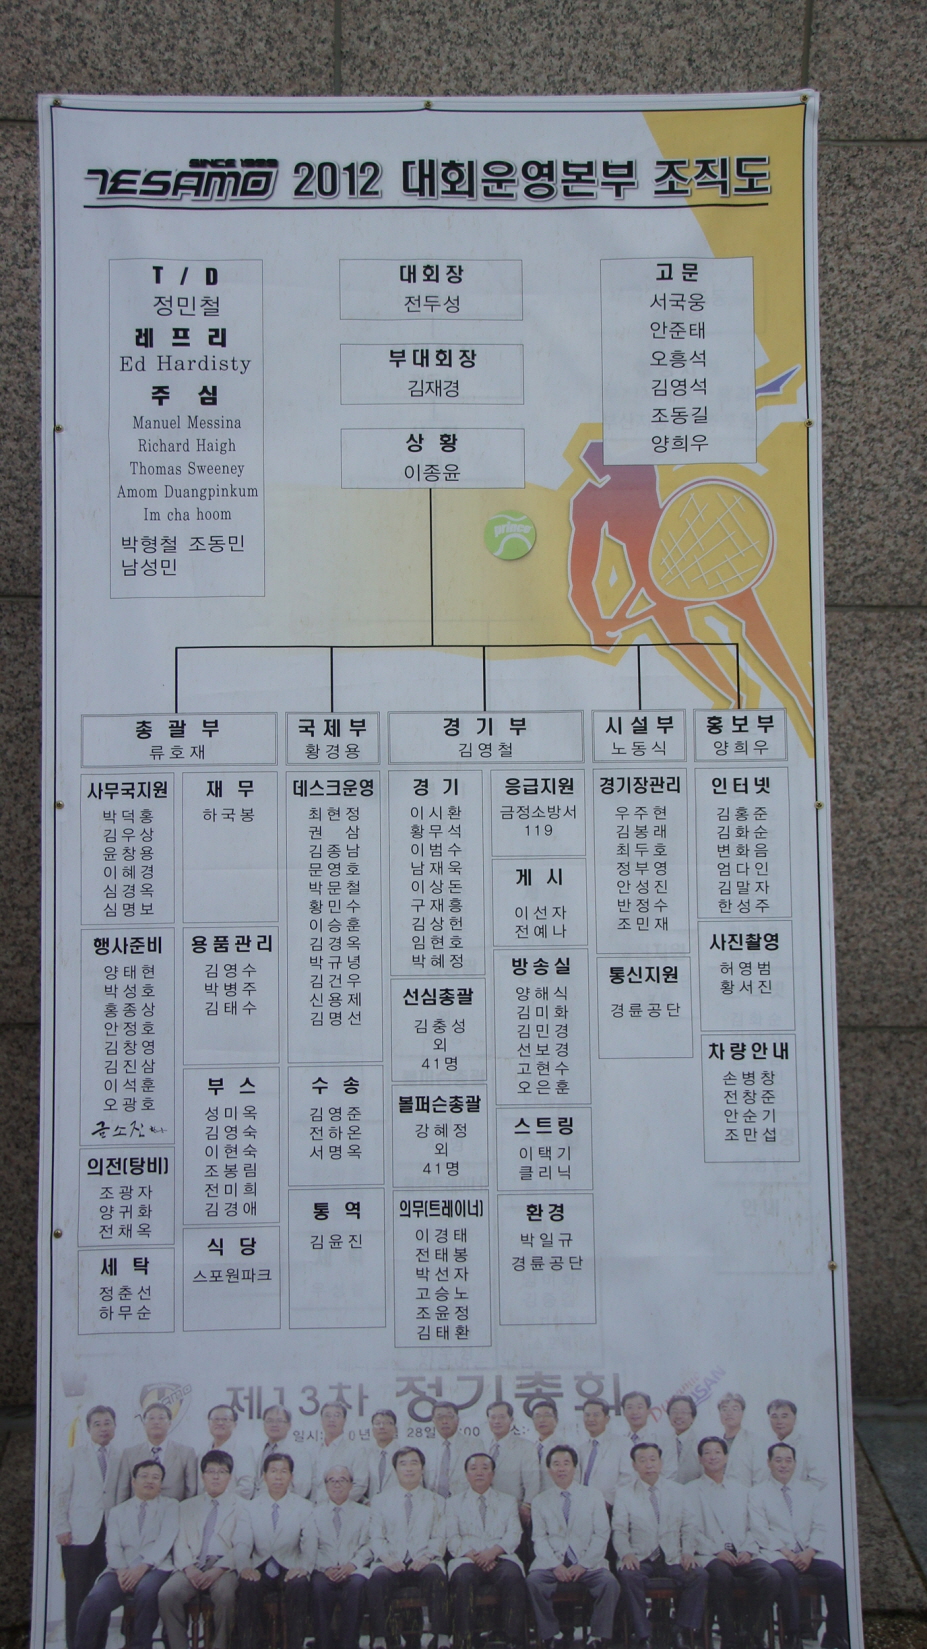 SINCE 1998
TESAMO 2012 대회운영본부 조직도
T / D
정민철
레프리
Ed Hardisty
주 심
Manuel Messina
Richard Haigh
Thomas Sweeney
Amom Duangpinkum
Im cha hoom
박형철 조동민
남성민
대회장
전두성
부대회장
김재경
상 황
이종윤
고문
서국웅
안준태
오흥석
김영석
조동길
양희우
prince
총 괄 부
류호재
사무국지원
박덕홍
김우상
윤창용
이혜경
심경옥
심명보
행사준비
양태현
박성호
홍종상
안정호
김창영
김진삼
이석훈
오광호
의전(탕비)
조광자
양귀화
전채옥
세 탁
정춘선
하무순
재 무
하국봉
용품관리
김영수
박병주
김태수
부 스
성미옥
김영숙
이현숙
조봉림
전미희
김경애
식 당
스포원파크
국제부
황경용
데스크운영
최현정
권 삼
김종남
문영호
박문철
황민수
이승훈
김경옥
박규녕
김건우
신용제
김명선
수 송
김영준
전하온
서명옥
통 역
김윤진
경 기 부
김영철
경 기
이시환
황무석
이범수
남재욱
이상돈
구재흥
김상헌
임현호
박혜정
선심총괄
김충성
외
41명
볼퍼슨총괄
강혜정
외
41명
의무(트레이너)
이경태
전태봉
박선자
고승노
조윤정
김태환
응급지원
금정소방서
119
게 시
이선자
전예나
방송실
양해식
김미화
김민경
선보경
고현수
오은훈
스트링
이택기
클리닉
환경
박일규
경륜공단
시설부
노동식
경기장관리
우주현
김봉래
최두호
정부영
안성진
반정수
조민재
통신지원
경륜공단
홍보부
양희우
인터넷
김홍준
김화순
변화음
엄다인
김말자
한성주
사진촬영
허영범
황서진
차량안내
손병창
전창준
안순기
조만섭
제13차 정기총회